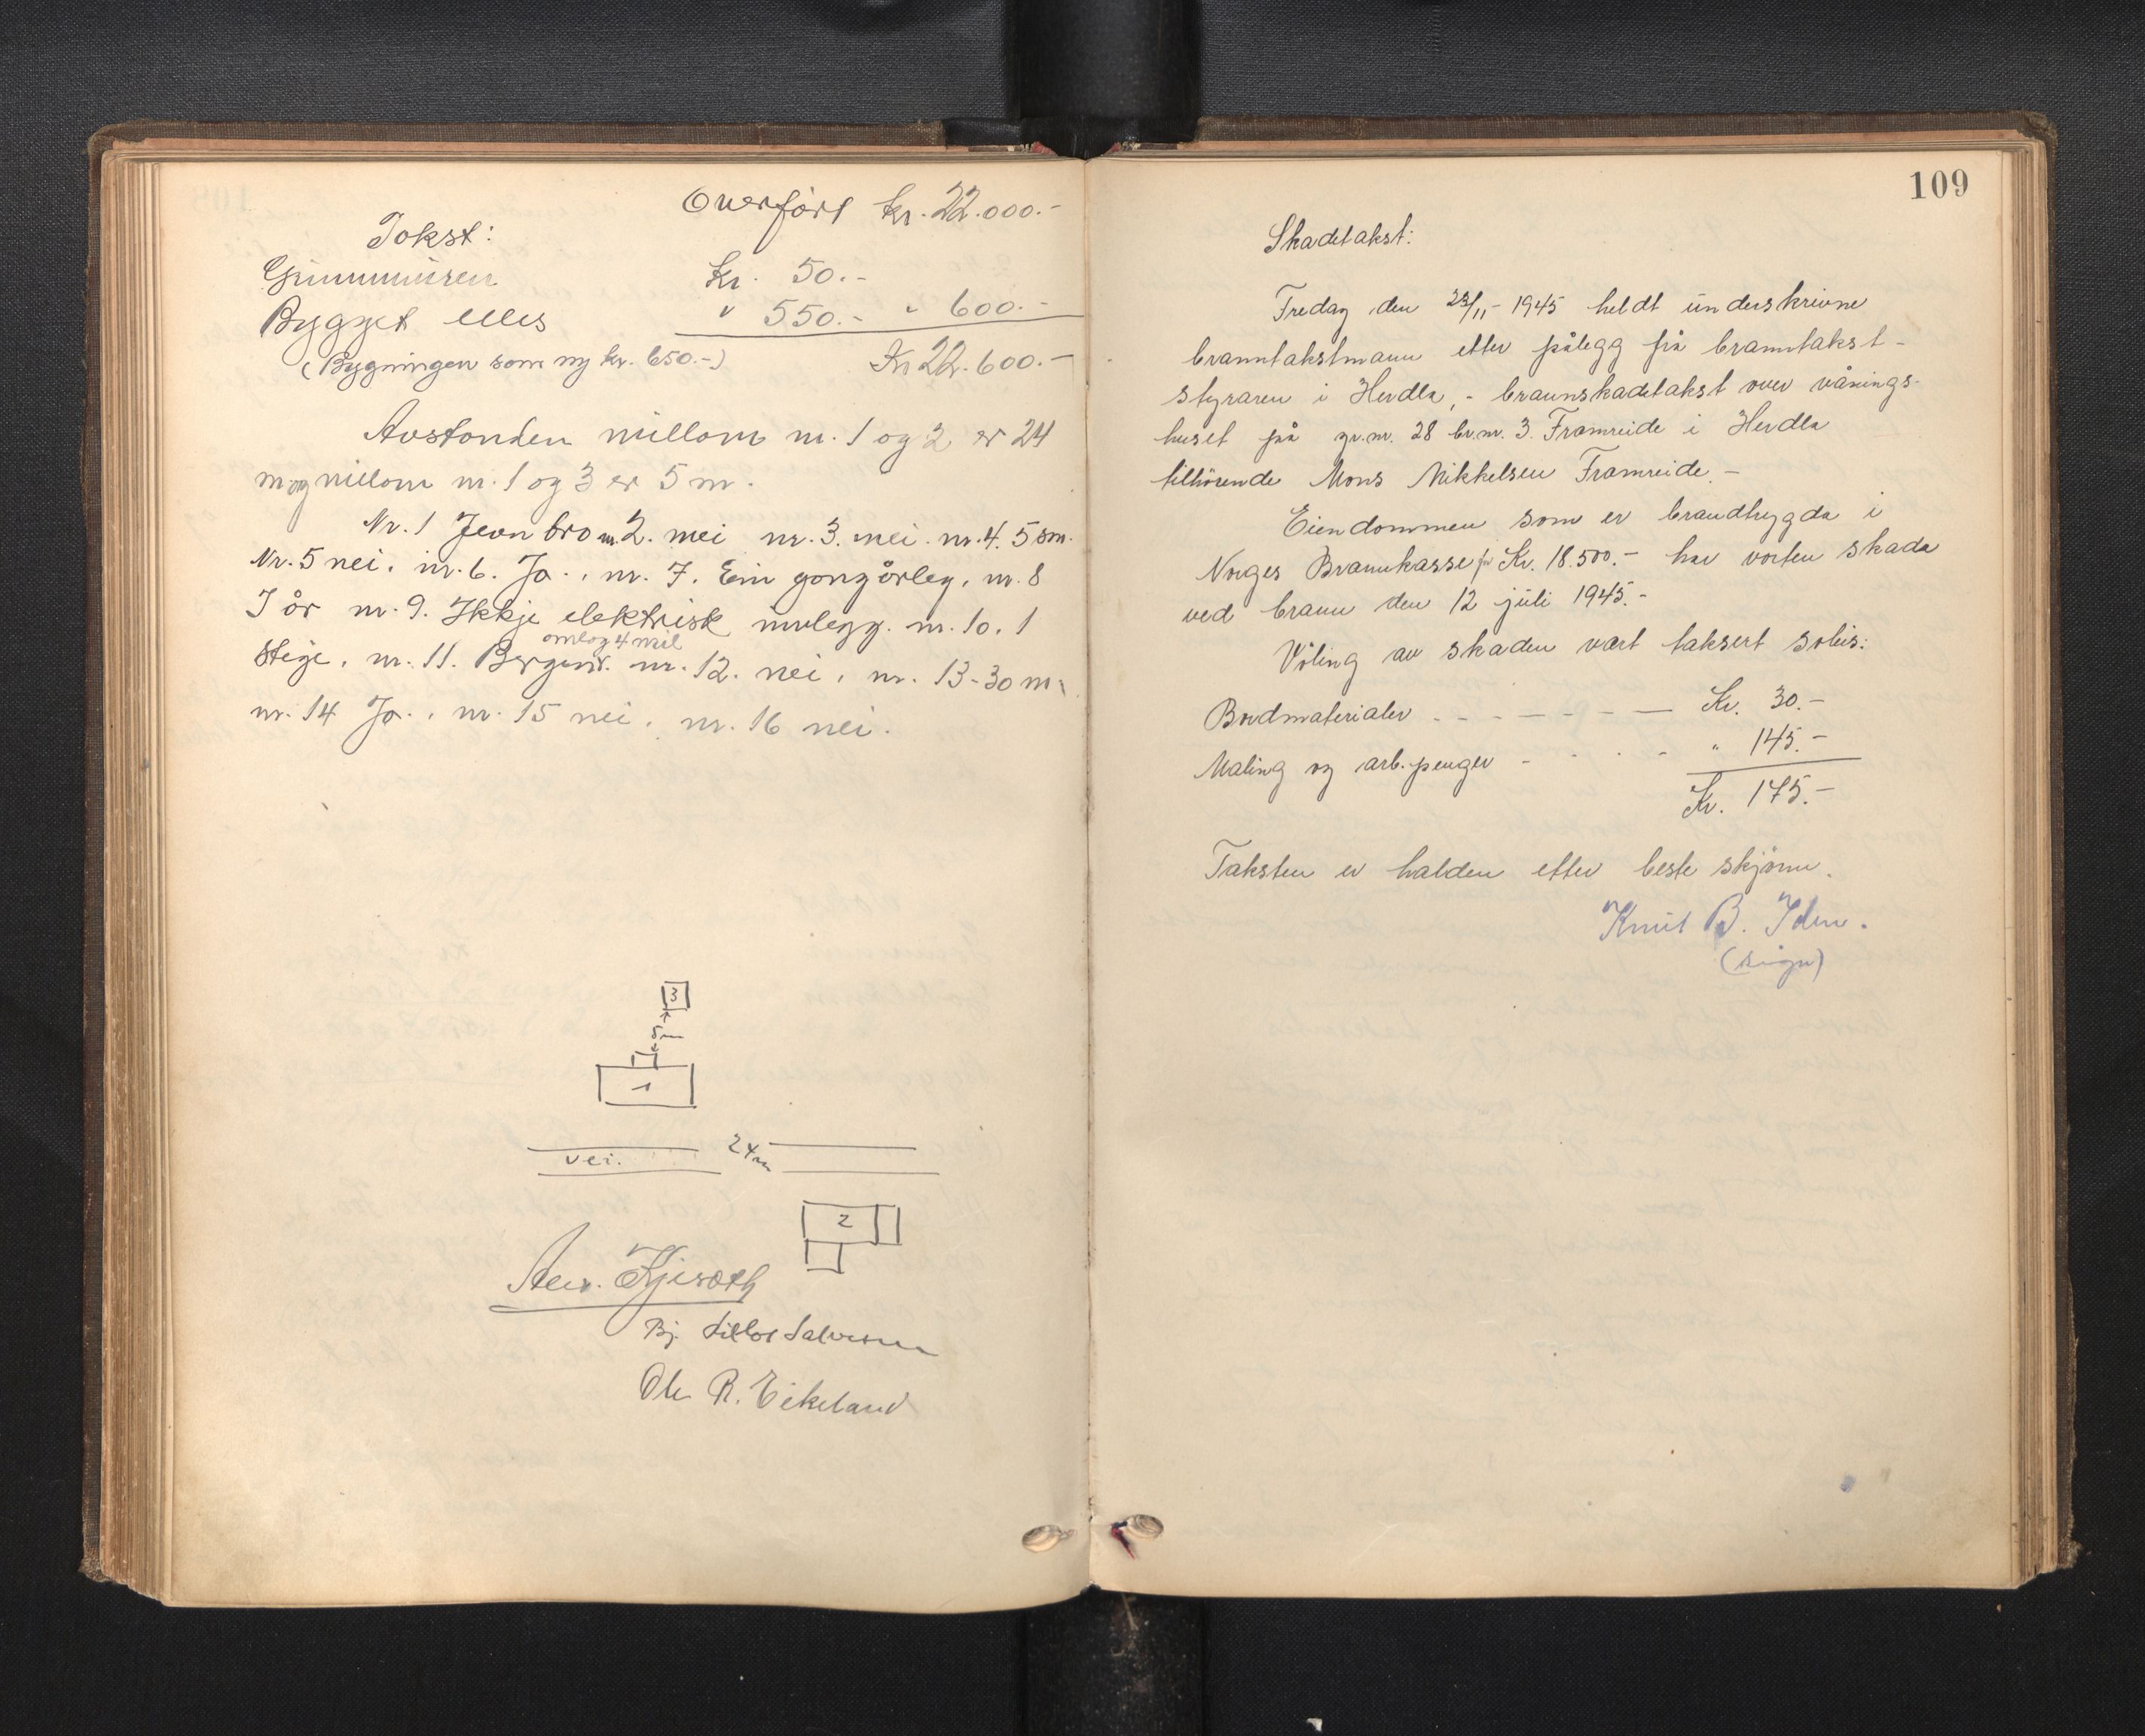 Overført kr. 22.000.-
Takst:
Grunnmuren Kr. 50.-
Bygget elles " 550.- " 600.-
(Bygningen som ny kr. 650.-) Kr 22.600.-
Avstanden millom nr. 1 og 2 er 24
m og millom nr. 1 og 3 er 5 m.
Nr. 1 Jevn bra nr. 2. nei nr. 3. nei. nr. 4. 5 sm.
Nr. 5 nei. nr. 6. Ja., nr. 7. Ein gong årleg. nr. 8
I år nr. 9. Ikkje elektrisk innlegg. nr. 10. 1
omlag 4 mil
Stige. nr. 11. Bergen. nr. 12. nei. nr. 13 - 30 m.
nr. 14 Ja., nr. 15 nei. nr. 16 nei.
3
5 m
1
24 m
vei.
2
Bj. Lillos Salversen
Ole R. Eikeland
109
Skadetakst:
Fredag den 23/11- 1945 heldt underskrivne
branntakstmann etter pålegg frå branntakst-
styraren i Herdla, - brannskadetakst over vånings-
huset på gr.nr. 28 br.nr. 3. Framreide i Herdla
tilhörende Mons Mikkelsen Framreide. -
Eiendommen som er brandtrygda i
Norges Brannkasse for Kr. 18.500.- har vorten skada
ved brann den 12 juli 1945.-
Völing av skaden vart taksert soleis:
Bordmaterialer - - - - - - - Kr. 30.-
Maling og arb. penger - - - - " 145.-
Kr. 175.-
Taksten er halden etter beste skjönn.
Knut B. Iden.
(sign)